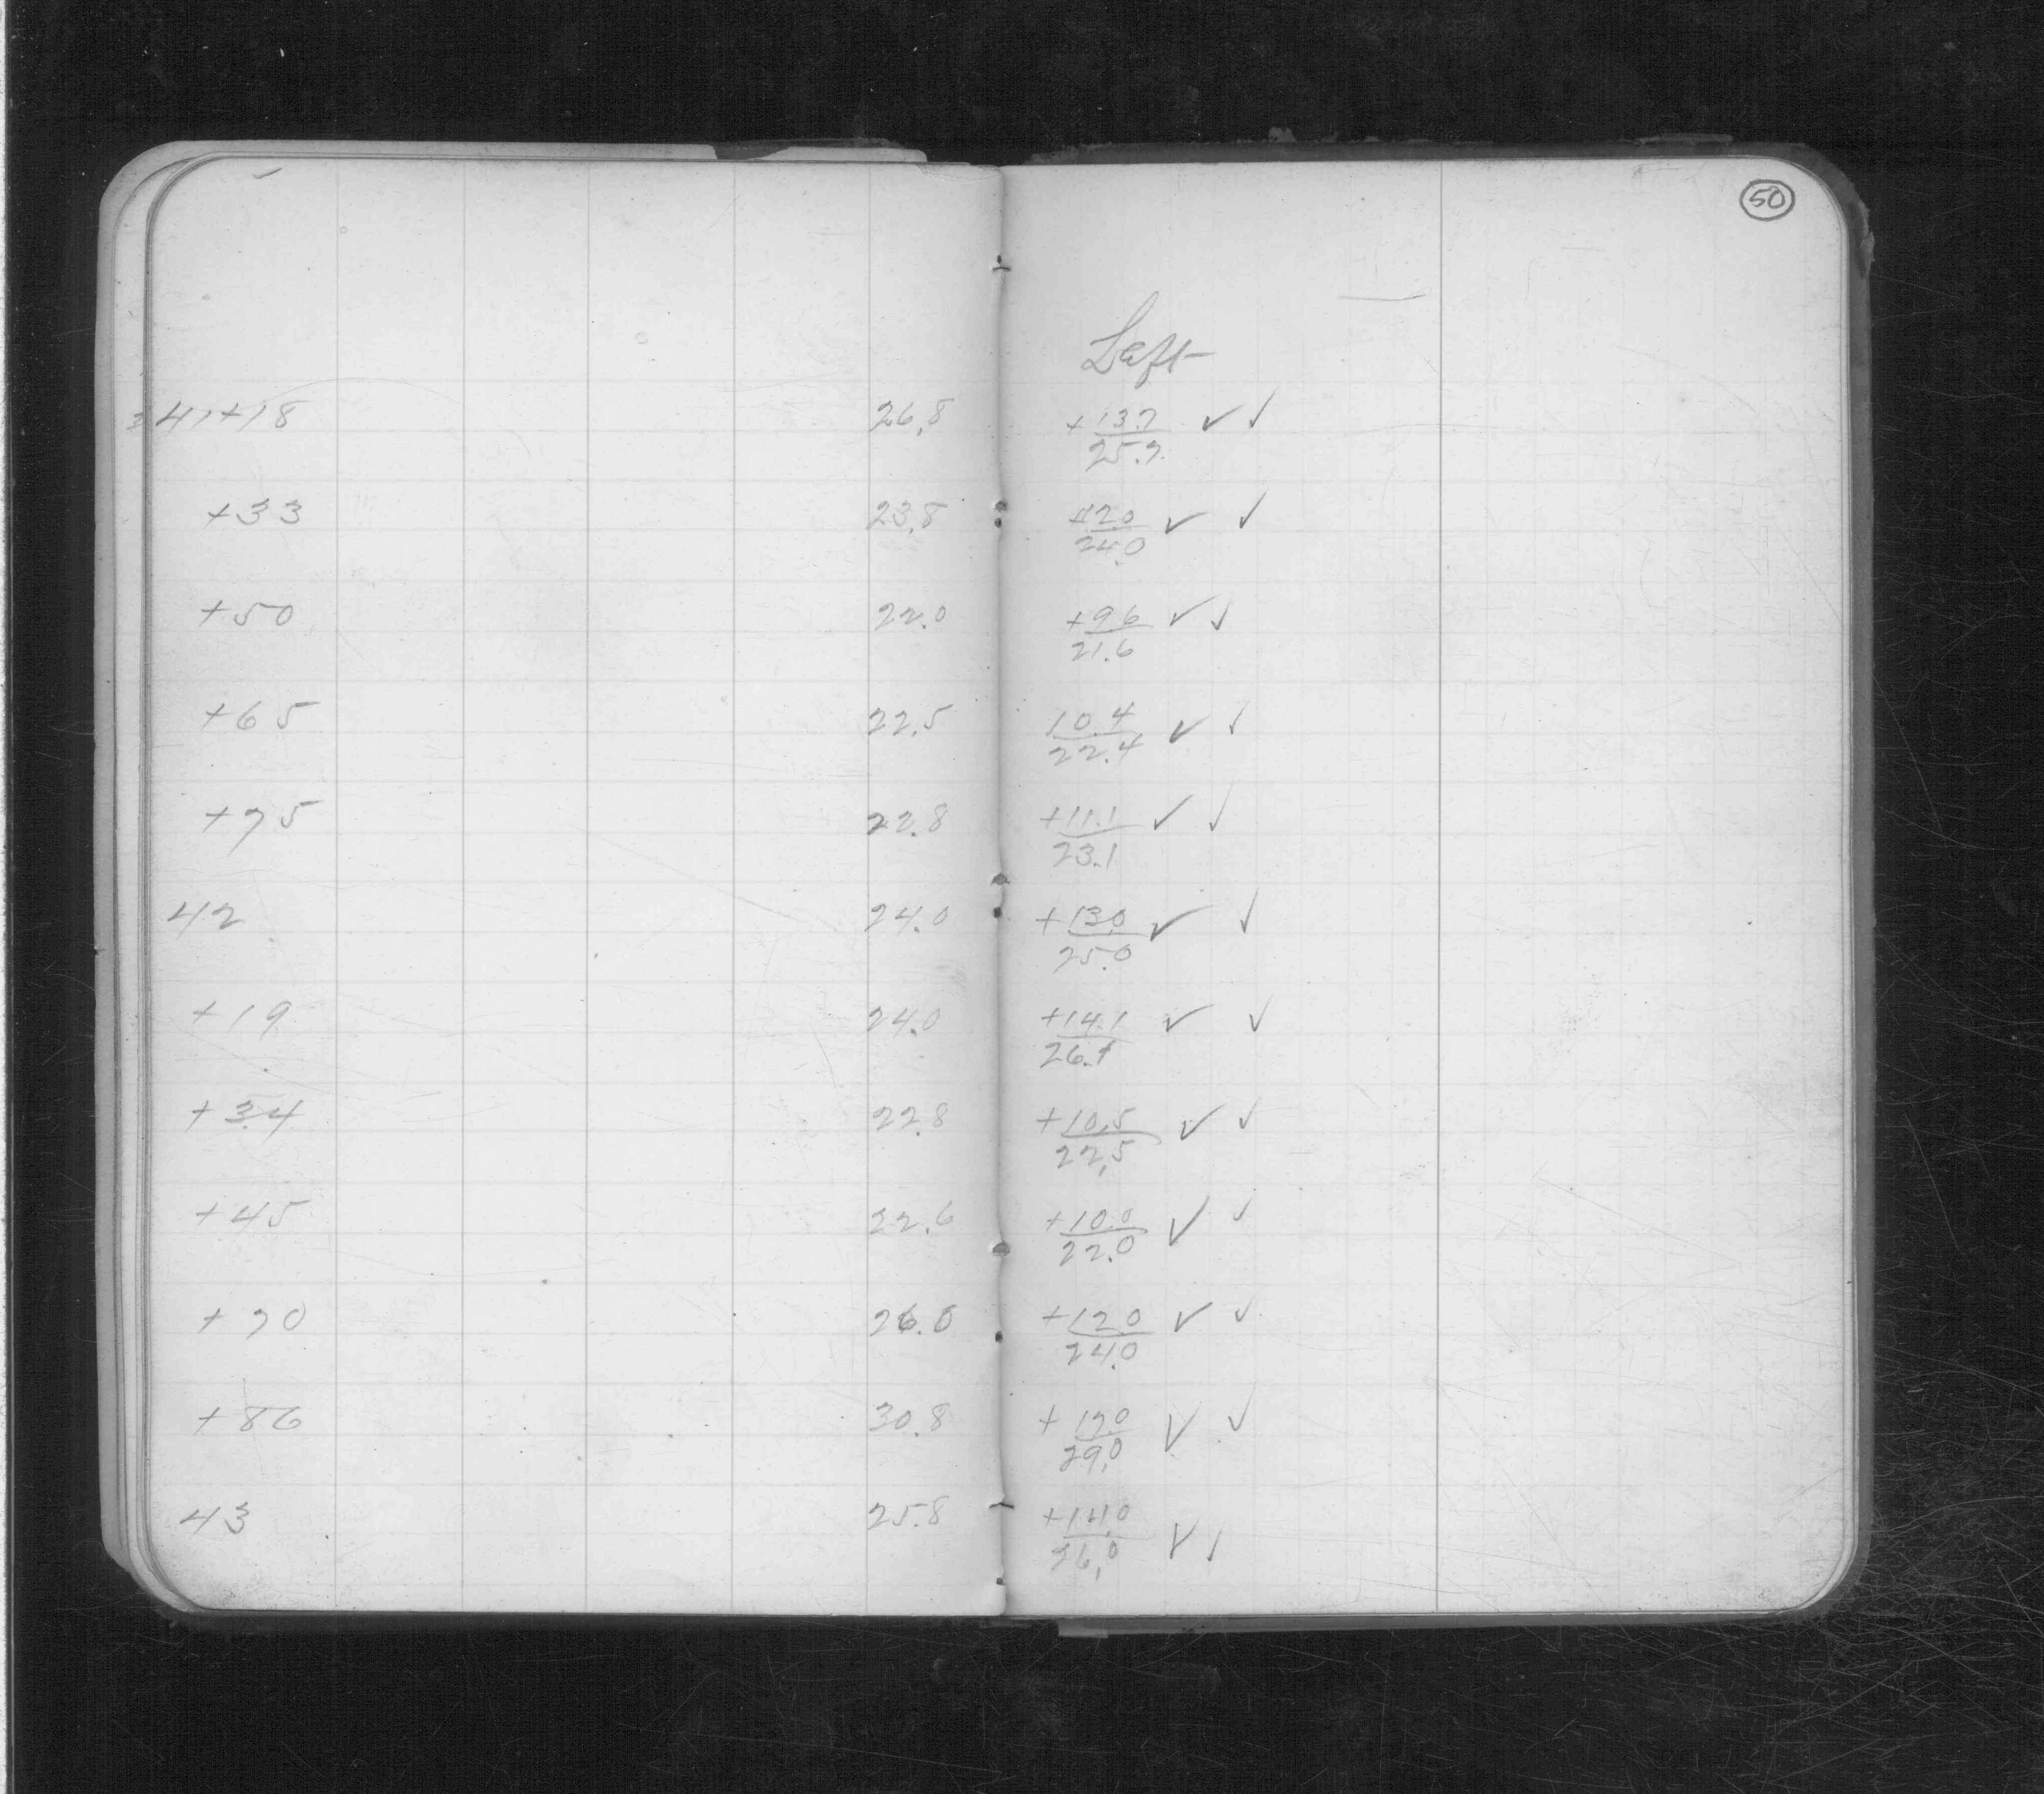 50
Left
341+18 26.8 +13.7/25.7 ✓ ✓
+33 23.8 +12.0/24.0 ✓ ✓
+50 22.0 +9.6/21.6 ✓ ✓
+65 22.5 10.4/22.4 ✓ ✓
+75 22.8 +11.1/23.1 ✓ ✓
42 24.0 +13.0/25.0 ✓ ✓
+19 24.0 +14.1/26.1 ✓ ✓
+34 22.8 +10.5/22.5 ✓ ✓
+45 22.6 +10.0/22.0 ✓ ✓
+70 26.0 +12.0/24.0 ✓ ✓
+86 30.8 +17.0/29.0 ✓ ✓
43 25.8 +14.0/26.0 ✓ ✓